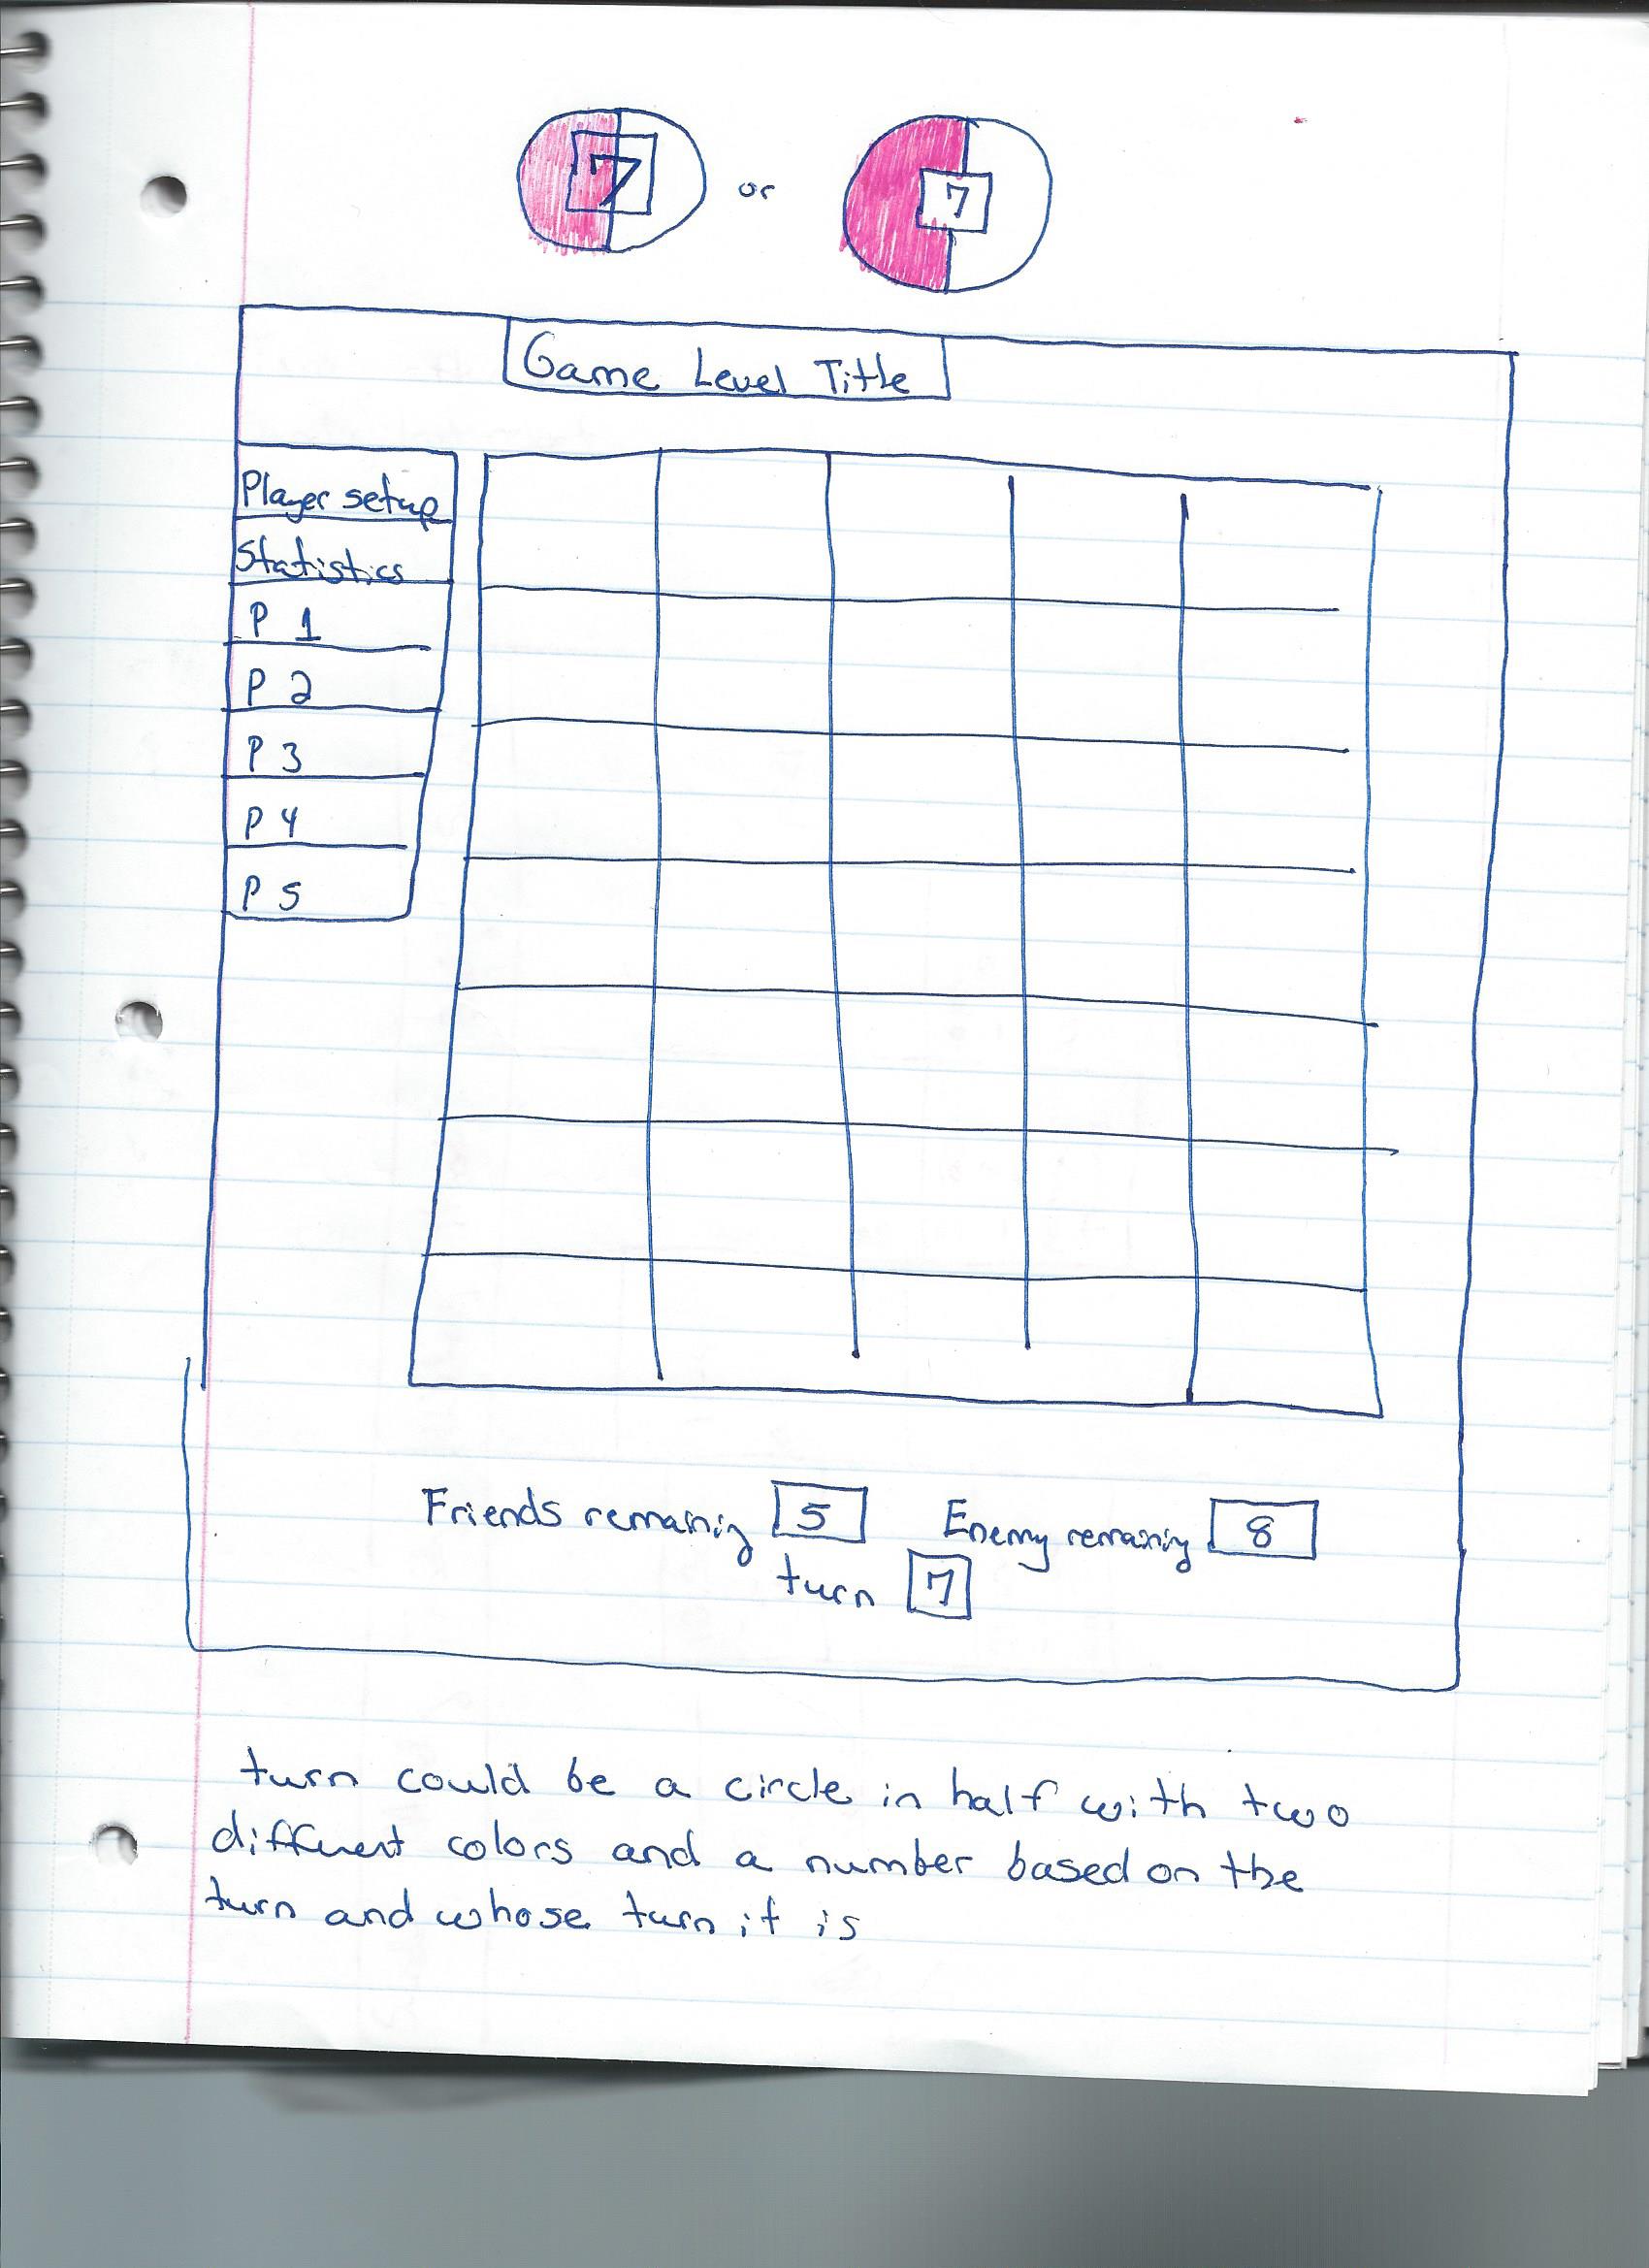 7 or 7
Game Level Title
Player setup
Statistics
P 1
P 2
P 3
P 4
P 5
Friends remaing 5 Enemy remaing 8
turn 7
turn could be a circle in half with two
different colors and a number based on the
turn and whose turn it is